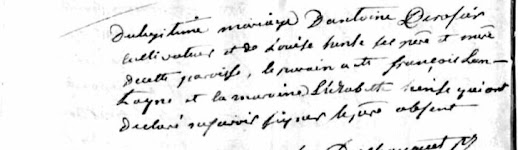 du legitime mariage D'antoine Derosier
cultivateur et de Louise hinse ses père et mère
de cette paroisse, le parain a été françois Lan-
-layne et la maraine Elizabeth hinse qui ont
declaré ne savoir signer le père absent